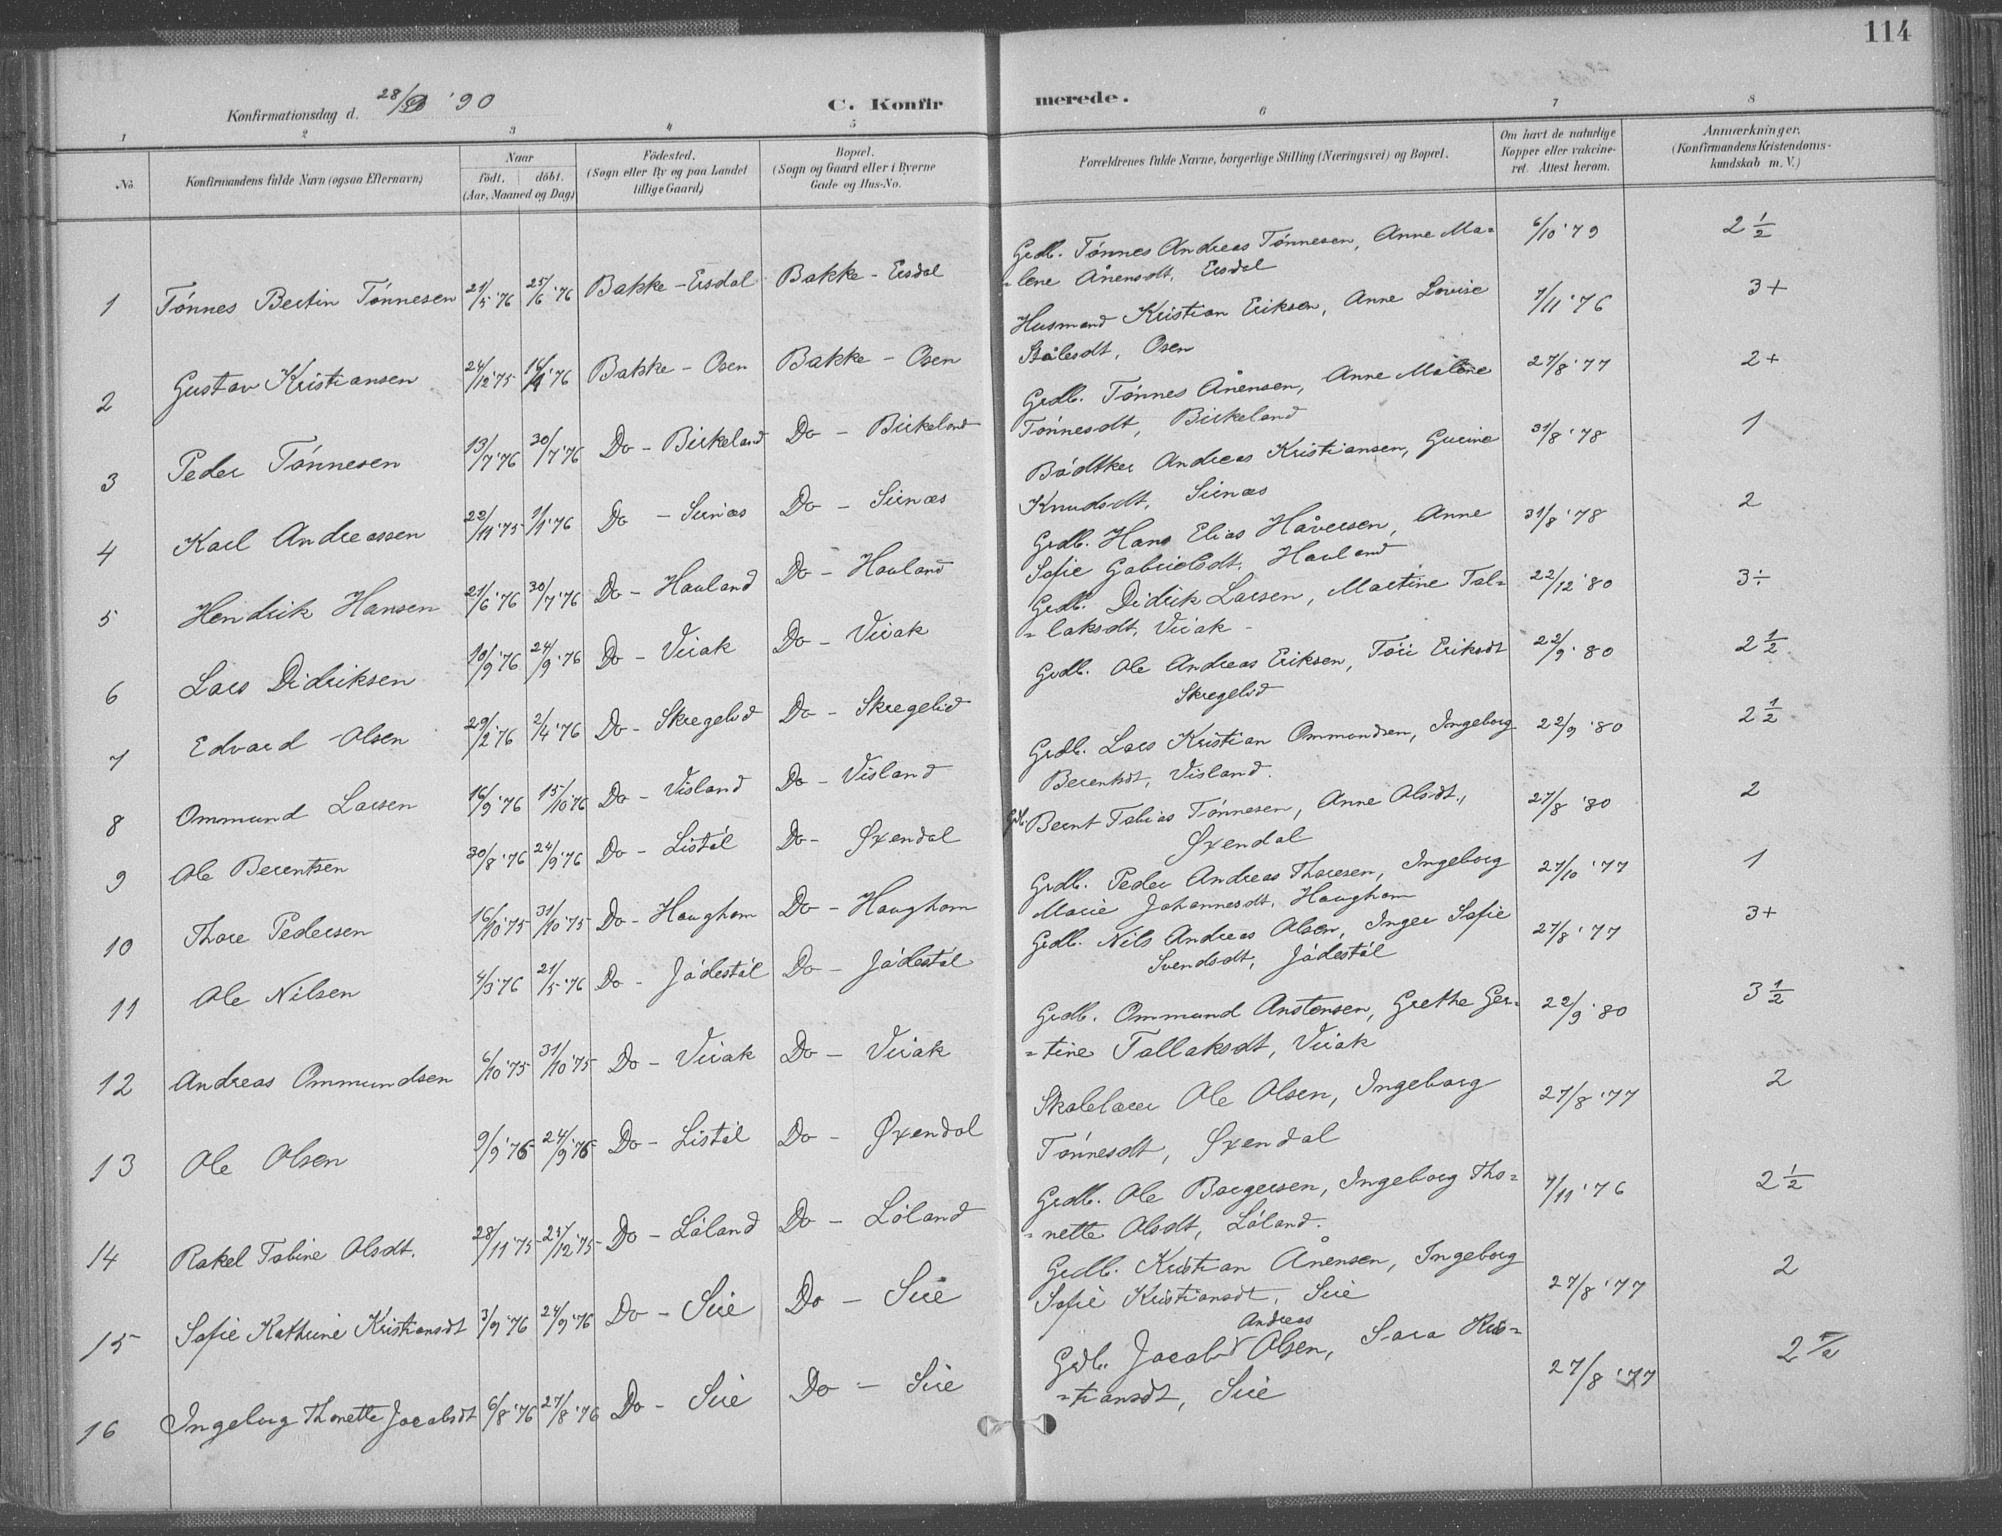 114
Konfirmationsdag d. 28/9 '90
C. Konfirmerede.
1 2 3 4 5 6 7 8
No.
Konfirmandens fulde Navn (ogsaa Efternavn)
Naar
födt. döbt.
(Aar, Maaned og Dag)
Födested.
(Sogn eller By og paa Landet
tillige Gaard)
Bopæl.
(Sogn og Gaard eller i Byerne
Gade og Hus-No.
Forældrenes fulde Navne, borgerlige Stilling (Næringsvei) og Bopæl.
Om havt de naturlige
Kopper eller vakcine-
ret. Attest herom.
Anmærkninger.
(Konfirmandens Kristendoms-
kundskab m. V.)
1 Tönnes Bertin Tönnesen 21/5 '76 25/6 '76 Bakke - Eisdal Bakke - Eisdal Grdb. Tönnes Andreas Tönnesen, Anne Ma= 6/10 '79 2 1/2
=lene Ånensdt, Eisdal
2 Gustav Kristiansen 24/12 '75 '76 Bakke - Osen Bakke - Osen Husmand Kristian Eriksen, Anne Lovise 7/11 '76 3+
Stålesdt, Osen
3 Peder Tönnesen 13/7 '76 30/7 '76 Do - Birkeland Do - Birkeland Grdb. Tönnes Ånensen, Anne Malene 27/8 '77 2+
Tönnesdt, Birkeland
4 Karl Andreassen 22/11 '75 1/1 '76 Do - Sirnæs Do - Sirnæs Bödtker Andreas Kristiansen, Gurine 31/8 '78 1
Knudsdt, Sirnæs
5 Hendrik Hansen 21/6 '76 30/7 '76 Do - Hauland Do - Hauland Grdb. Hans Elias Håversen, Anne 31/8 '78 2
Sofie Gabrielsdt, Hauland
6 Lars Didriksen 10/9 '76 24/9 '76 Do - Virak Do - Virak Grdb. Didrik Larsen, Martine Tal= 22/12 '80 3÷
=laksdt, Virak -
7 Edvard Olsen 29/2 '76 2/4 '76 Do - Skregelid Do - Skregelid Grdb. Ole Andreas Eriksen, Töri Eriksdt 22/9 '80 2 1/2
Skregelid
8 Ommund Larsen 16/9 '76 15/10 '76 Do - Visland Do - Visland Grdb. Lars Kristian Ommundsen, Ingeborg 22/9 '80 2 1/2
Berentsdt, Visland.
9 Ole Berentsen 30/8 '76 24/9 '76 Do - Listöl Do - Øxendal Grdb. Bernt Tobias Tönnesen, Anne Olsdt., 27/8 '80 2
Øxendal
10 Thore Pedersen 16/10 '75 31/10 '75 Do - Haughom Do - Haughom Grdb. Peder Andreas Thoresen, Ingeborg 27/10 '77 1
Marie Johannesdt, Haughom
11 Ole Nilsen 21/5 '76 Do - Jödestöl Do - Jödestöl Grdb. Nils Andreas Olsen, Inger Sofie 27/8 '77 3+
Svendsdt, Jödestöl
12 Andreas Ommundsen 6/10 '75 31/10 '75 Do - Virak Do - Virak Grdb. Ommund Anstensen, Grethe Ger= 22/9 '80 3 1/2
=tine Tallaksdt, Virak
13 Ole Olsen 9/9 '76 24/9 '76 Do - Listöl Do - Øxendal Skolelærer Ole Olsen, Ingeborg 27/8 '77 2
Tönnesdt, Øxendal
14 Rakel Tobine Olsdt. 28/11 '75 25/12 '75 Do - Löland Do - Löland Grdb. Ole Borgersen, Ingeborg Tho= 7/11 '76 2 1/2
=nette Olsdt, Löland.
15 Sofie Kathrine Kristiansdt 3/9 '76 24/9 '76 Do - Sire Do - Sire Grdb. Kristian Ånensen, Ingeborg 27/8 '77 2
Sofie Kristiansdt, Sire
16 Ingeborg Thonette Jacobsdt 6/8 '76 27/8 '76 Do - Sire Do - Sire Grdb. Jacob Andreas Olsen, Sara Kris= 27/8 '77
=tiansdt, Sire